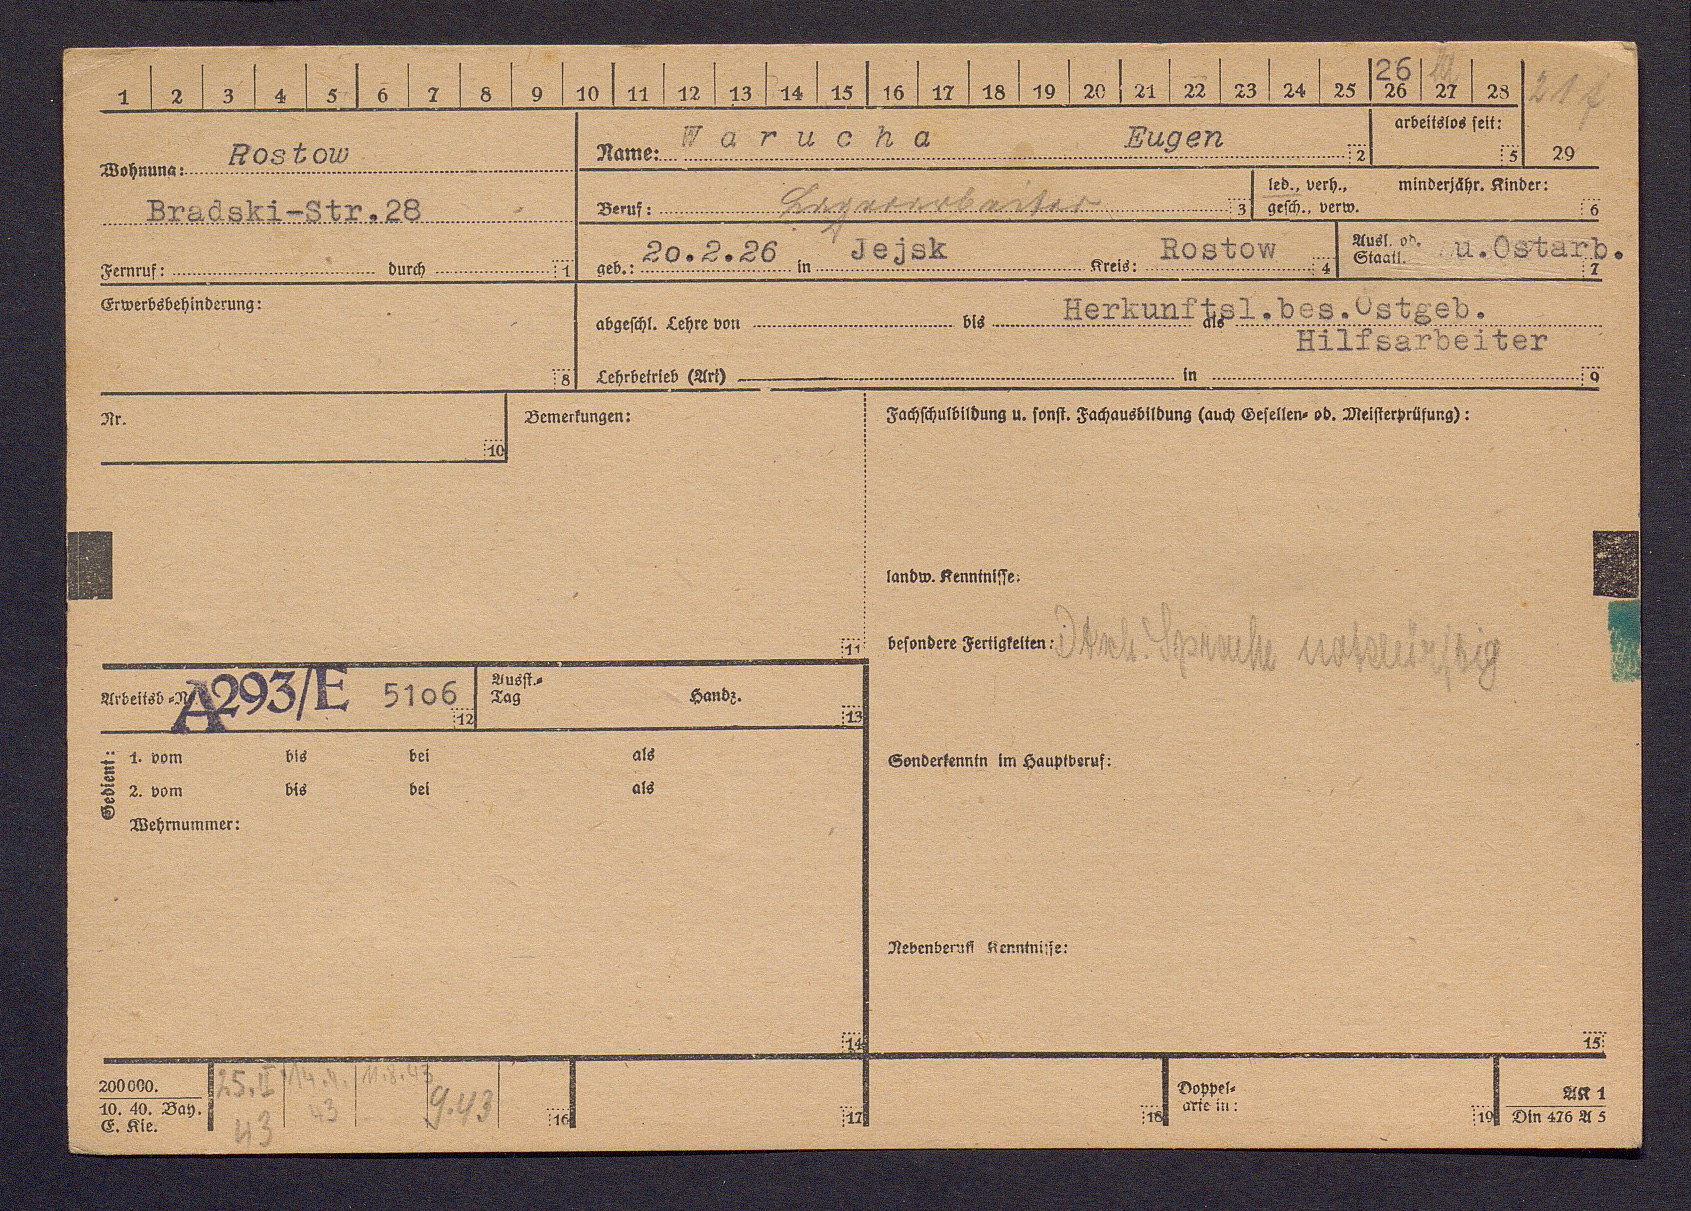 1 2 3 4 5 6 7 8 9 10 11 12 13 14 15 16 17 18 19 20 21 22 23 24 25 26 27 28
26
21
Wohnung: Rostow
Bradski-Str.28
Fernruf: durch 1
Name: Warucha Eugen 2
arbeitslos seit: 5
29
Beruf: 3
led., verh., minderjähr. Kinder:
gesch., verw. 6
geb.: 20.2.26 in Jejsk Kreis: Rostow 4
Ausl. od. u.Ostarb.
Staatl. 7
Erwerbsbehinderung:
8
Herkunftsl.bes.Ostgeb.
abgeschl. Lehre von bis als
Hilfsarbeiter
Lehrbetrieb (Art) in 9
Nr.
10
Bemerkungen:
11
Fachschulbildung u. sonst. Fachausbildung (auch Gesellen- od. Meisterprüfung):
landw. Kenntnisse:
besondere Fertigkeiten: Dtsch. Sprache notdürftig
Sonderkenntn im Hauptberuf:
Nebenberufl Kenntnisse:
15
Arbeitsb-N A293/E 5106 12
Ausst.-
Tag Handz. 13
Gedient:
1. vom bis bei als
2. vom bis bei als
Wehrnummer:
14
200000.
10. 40. Bay.
E. Kie.
25.II 14.4. 11.8.43
43 43 9.43
16 17 18
Doppel-
arte in: 19
AK 1
Din 476 A 5